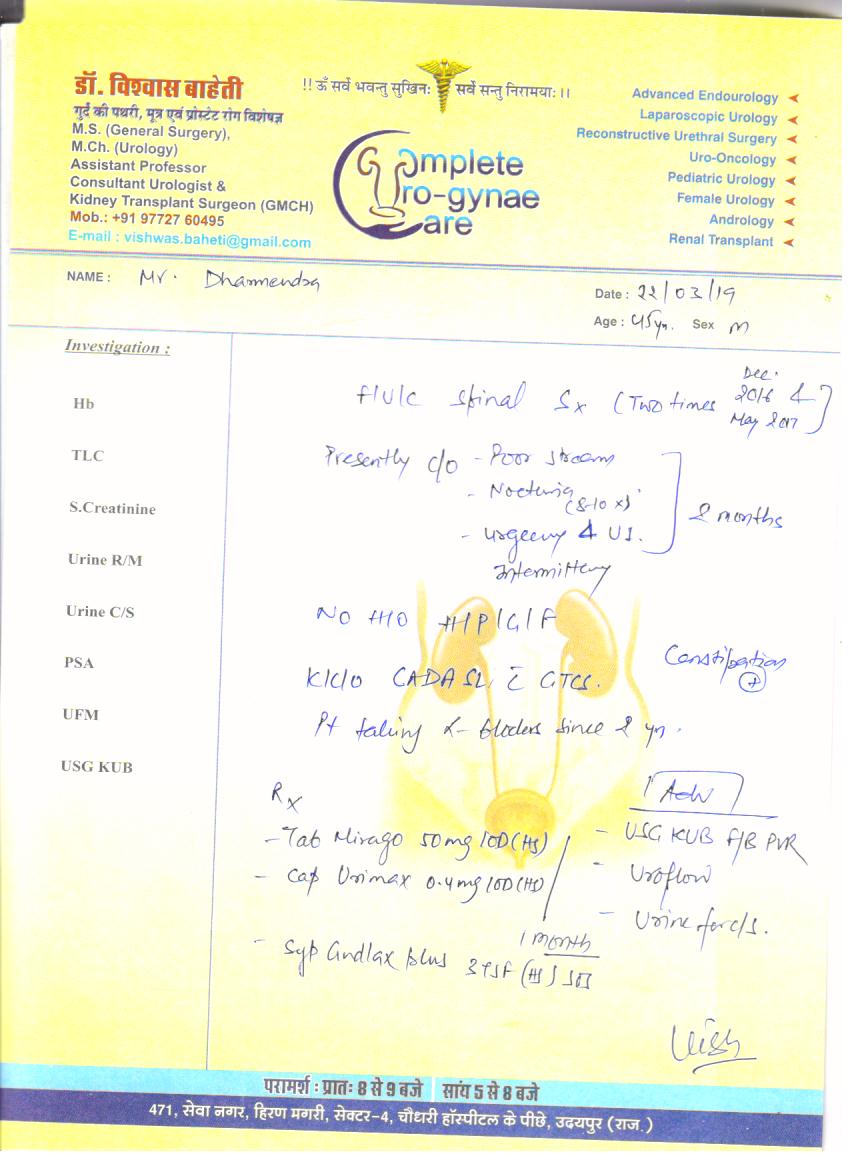 डॉ. विश्वास बाहेती
गुर्दे की पथरी, मूत्र एवं प्रोस्टेट रोग विशेषज्ञ
M.S. (General Surgery),
M.Ch. (Urology)
Assistant Professor
Consultant Urologist &
Kidney Transplant Surgeon (GMCH)
Mob.: +91 97727 60495
E-mail : vishwas.baheti@gmail.com
!! ॐ सर्वे भवन्तु सुखिनः सर्वे सन्तु निरामयाः ।।
Complete
Uro-gynae
Care
Advanced Endourology
Laparoscopic Urology
Reconstructive Urethral Surgery
Uro-Oncology
Pediatric Urology
Female Urology
Andrology
Renal Transplant
NAME : Mr. Dharmendra
Date : 22/03/19
Age : 45yr. Sex M
Investigation :
Hb
TLC
S.Creatinine
Urine R/M
Urine C/S
PSA
UFM
USG KUB
F/U/C Spinal Sx (Two times Dec. 2016 & May 2017)
Presently c/o - Poor stream
- Nocturia (8-10 x)
- Urgency & UI.
Intermittency
2 months
NO H/O H/P/G/F
Constipation +
K/C/O CADASIL c̄ GTCS.
Pt taking α- blockers since 2 yr.
Rx
- Tab Mirago 50mg 1OD (HS)
- Cap Urimax 0.4mg 1OD (HS)
1 month
- Syp Cudlax plus 3 TSF (HS)
Adv
- USG KUB F/B PVR
- Uroflow
- Urine for c/s.
परामर्श : प्रातः 8 से 9 बजे सांय 5 से 8 बजे
471, सेवा नगर, हिरण मगरी, सेक्टर-4, चौधरी हॉस्पीटल के पीछे, उदयपुर (राज.)